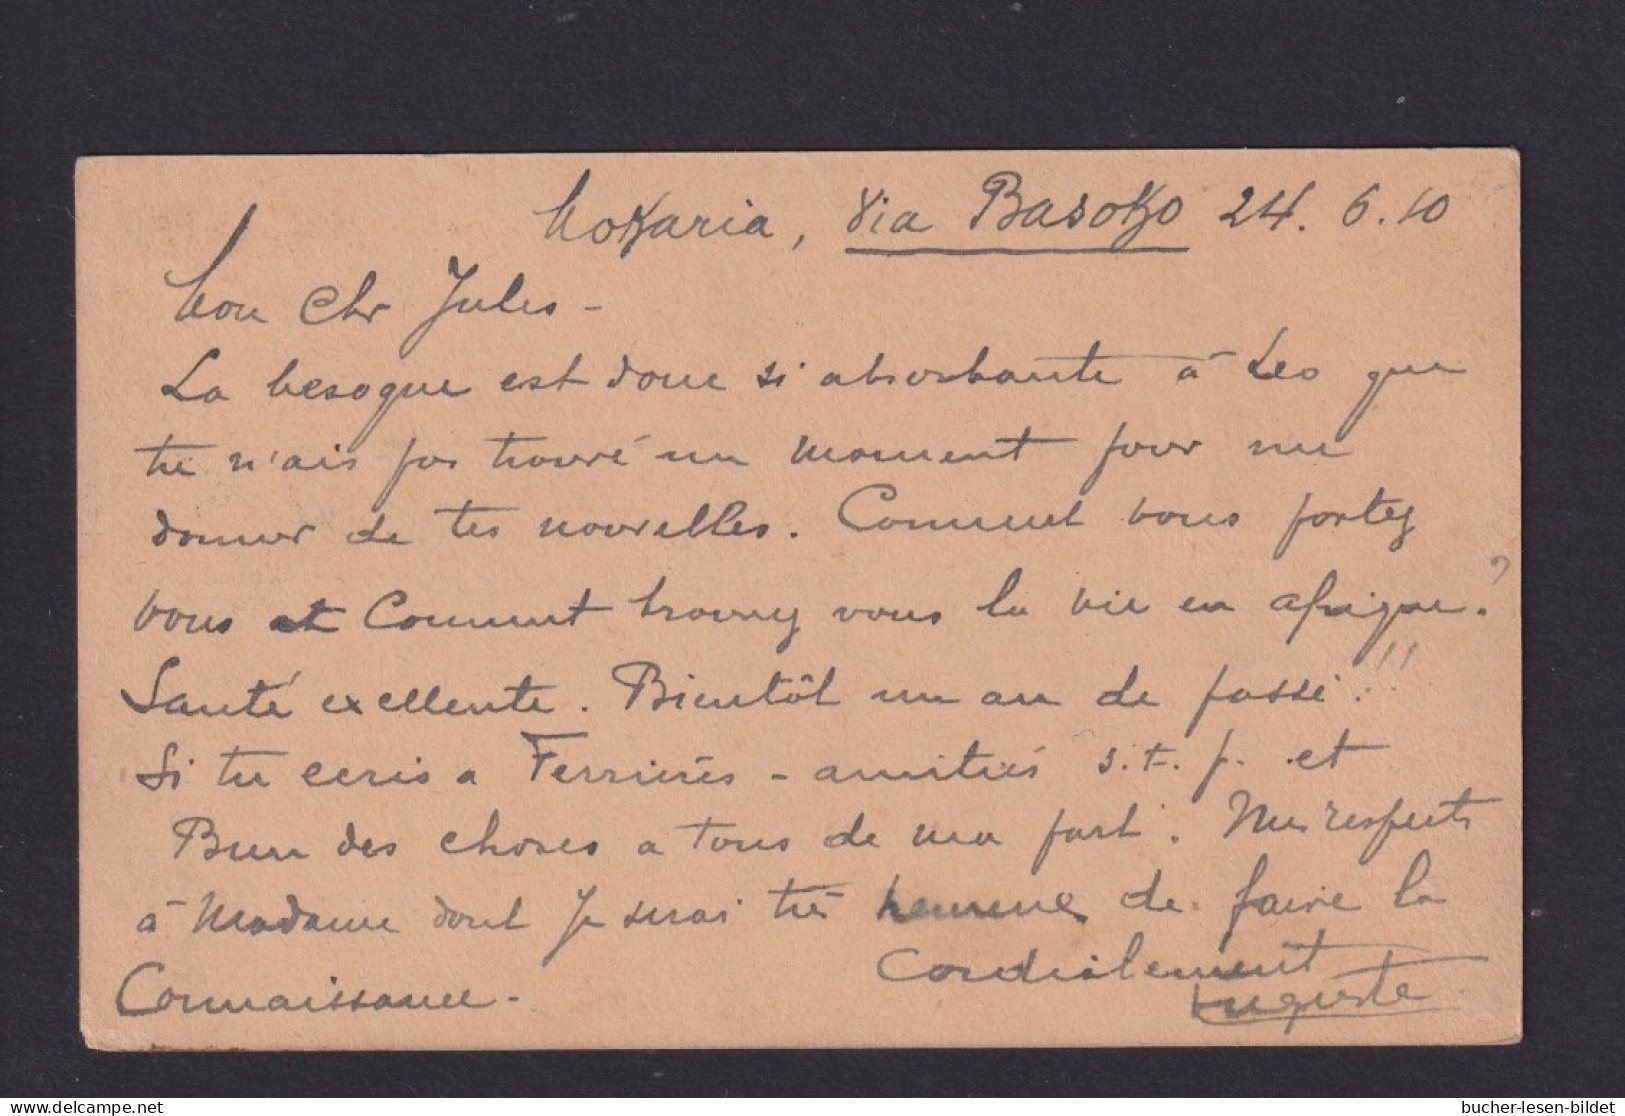 Mokaria, Via Basoko 24.6.10
Mon cher Jules -
La besogne est donc si absorbante à Leo que
tu n'ais pas trouvé un moment pour me
donner de tes nouvelles. Comment vous portez
vous et Comment trouvez vous la vie en afrique?
Santé excellente. Bientôt un an de passé!!!
Si tu ecris a Ferrières - amitiés s.t.p. et
Bien des choses a tous de ma part. Mes respects
à Madame dont je serai très heureux de faire la
Connaissance. - Cordialement
Auguste
bucher-lesen-bildet